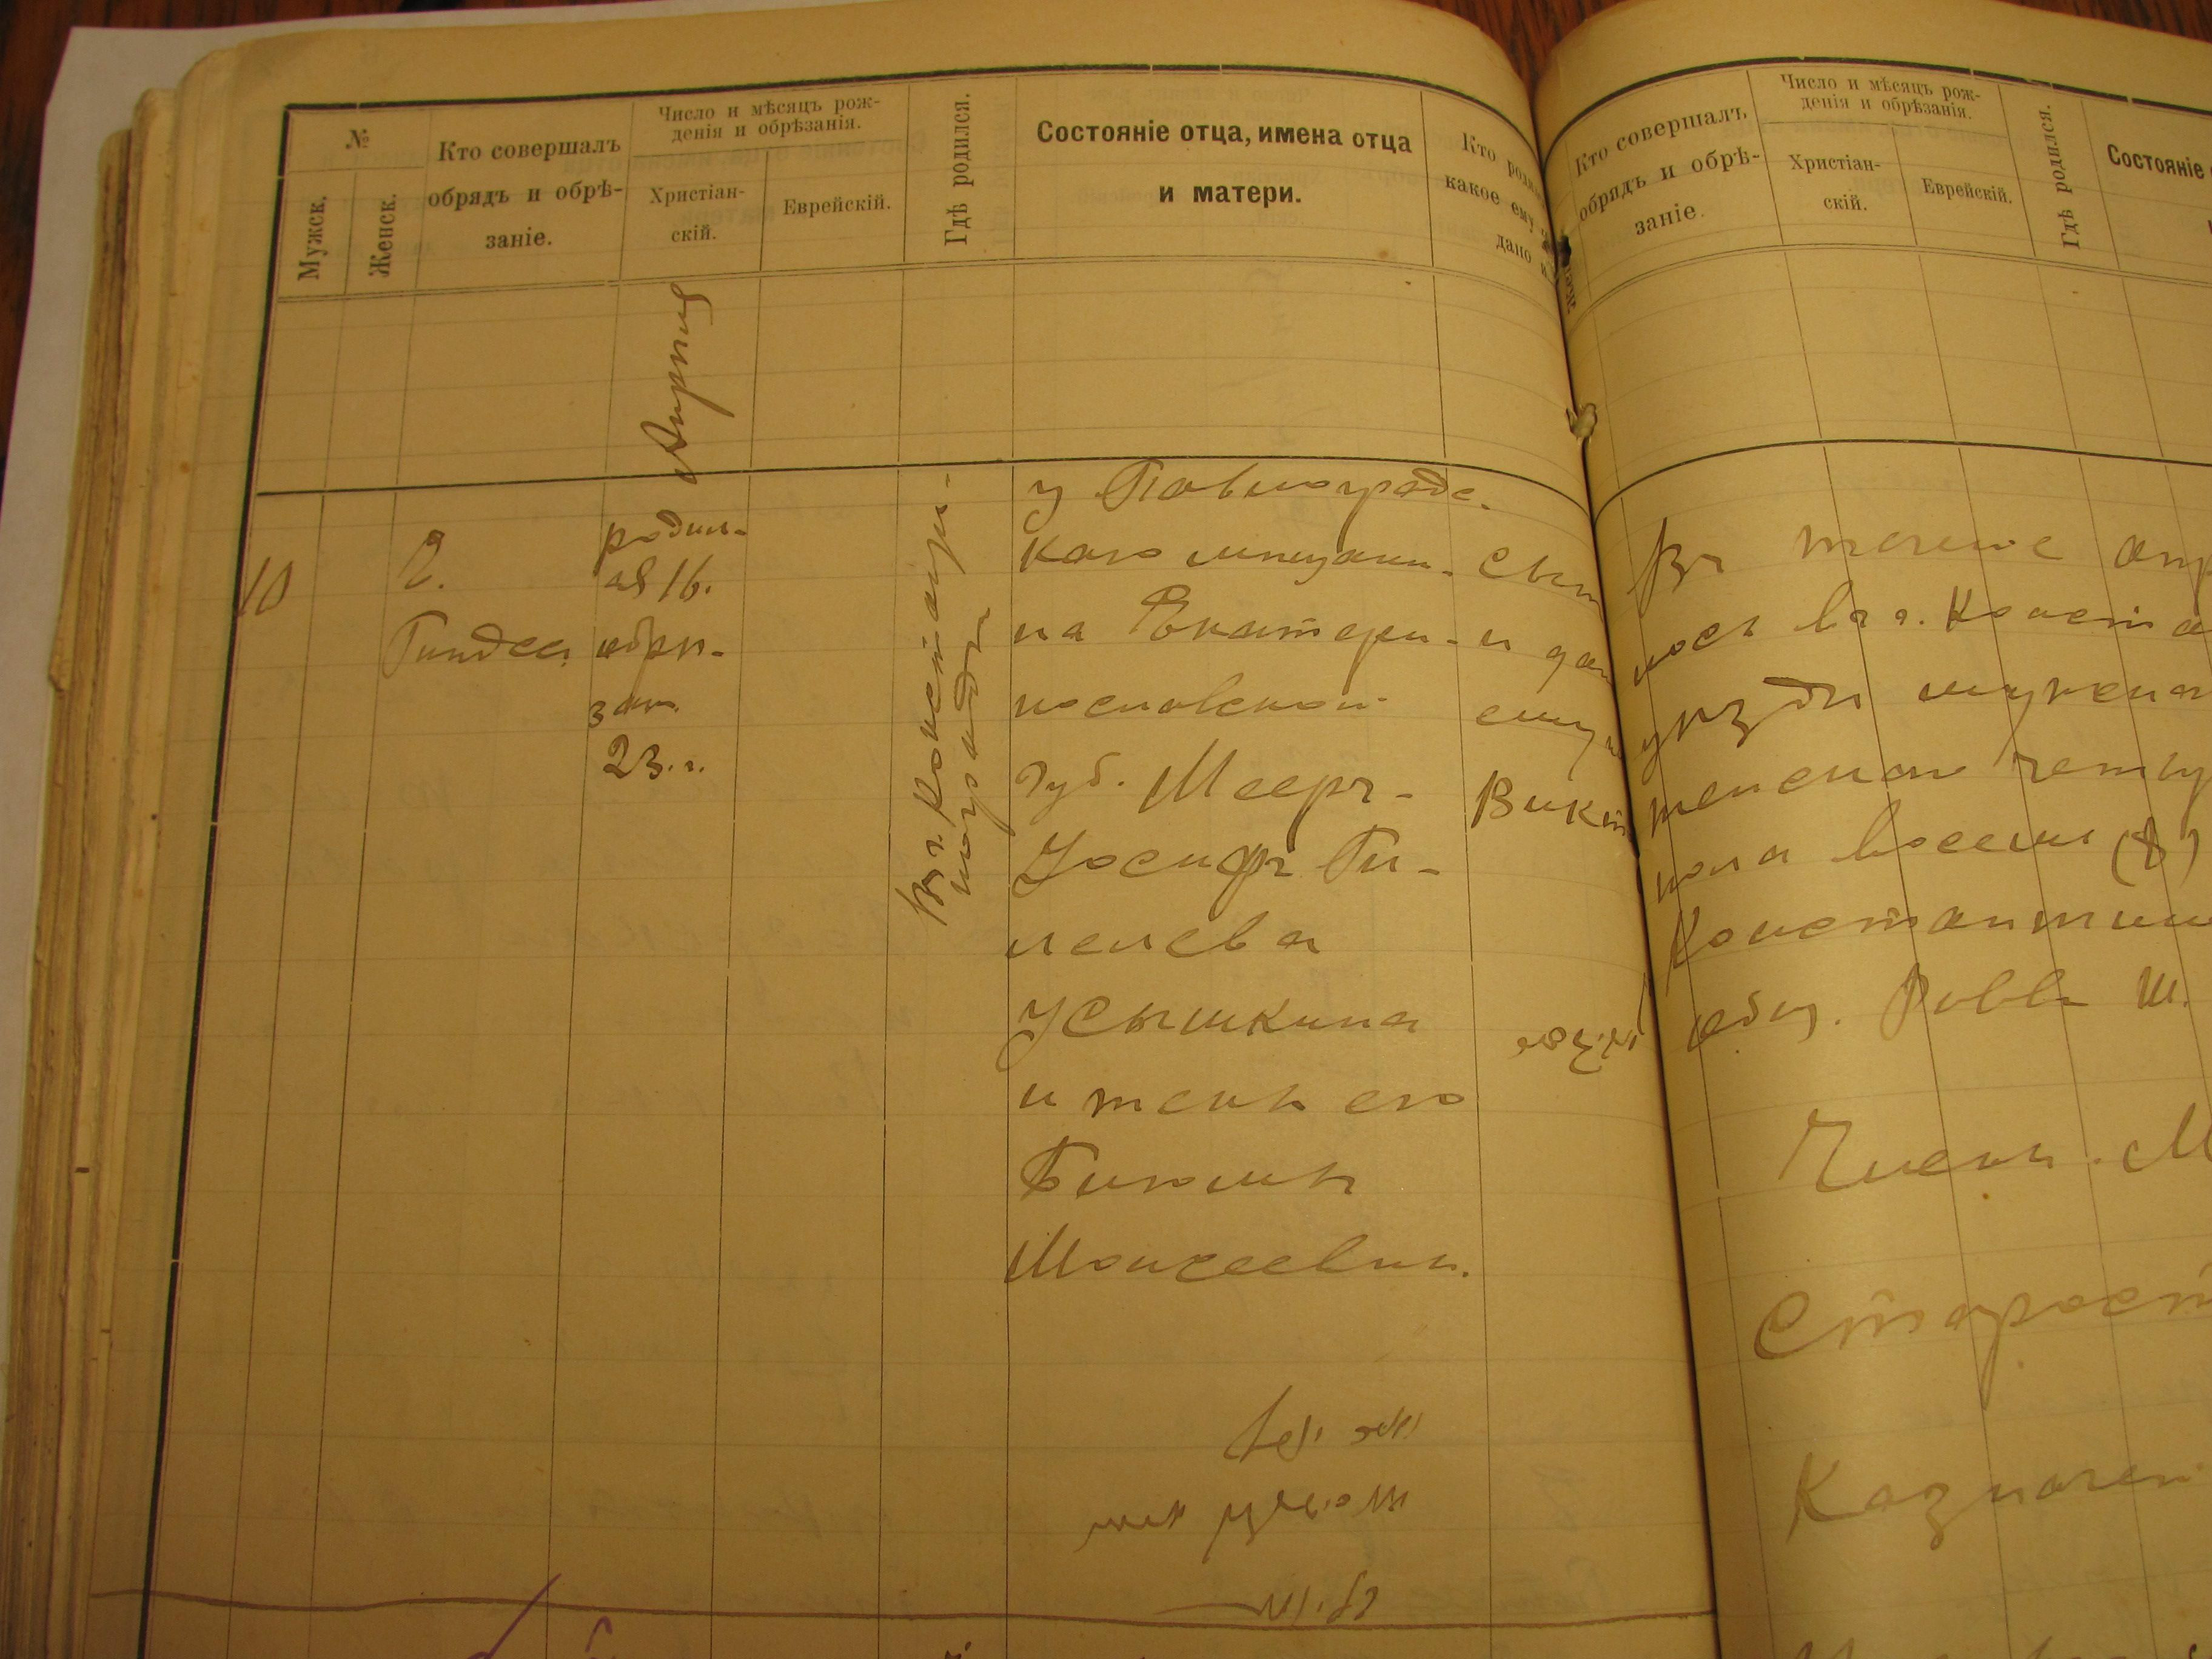 №
Мужск.
Женск.
Кто совершалъ
обрядъ и обрѣ-
заніе.
Число и мѣсяцъ рож-
денія и обрѣзанія.
Христіан-
скій.
Еврейскій.
Гдѣ родился.
Состояніе отца, имена отца
и матери.
Кто роди
какое ему
дано и
Апрѣля
10
Г.
Гиндес
родил-
ся 16.
обрѣ-
зан
23.г.
Въ г. Констант-
ноградѣ
у Павлоградс.
каго мѣщани-
на Екатери-
нославской
губ. Мееръ-
Іосифъ Ги-
лелева
Усышкина
и женѣ его
Блюмѣ
Моисеевны.
Сын
и дан
ему и
Викт
Кто совершалъ
обрядъ и обрѣ-
заніе.
Число и мѣсяцъ рож-
денія и обрѣзанія.
Христіан-
скій.
Еврейскій.
Гдѣ родился.
Состояніе
Въ течение апр
лось въ г. Конста
уѣзди мужска
женскаго четыр
пола восемь (8)
Константин
общ. Равв. Ш.
Члены. М
Старост
Казначей